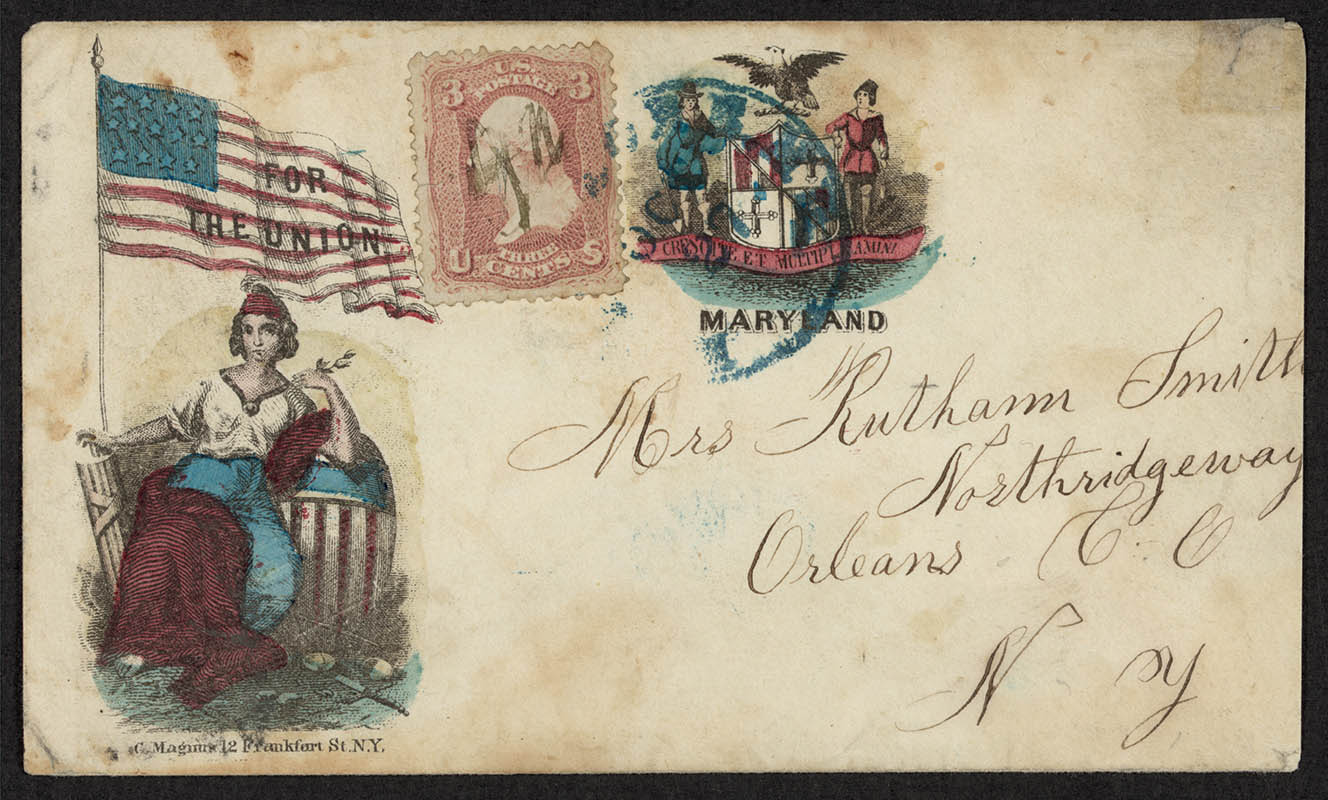 FOR
THE UNION
3 U.S. POSTAGE 3
U THREE CENTS S
CRESCITE ET MULTIPLICAMINI
MARYLAND
Mrs Ruthann Smith
Northridgeway
Orleans C-O
N Y
C. Magnus 12 Frankfort St. N.Y.